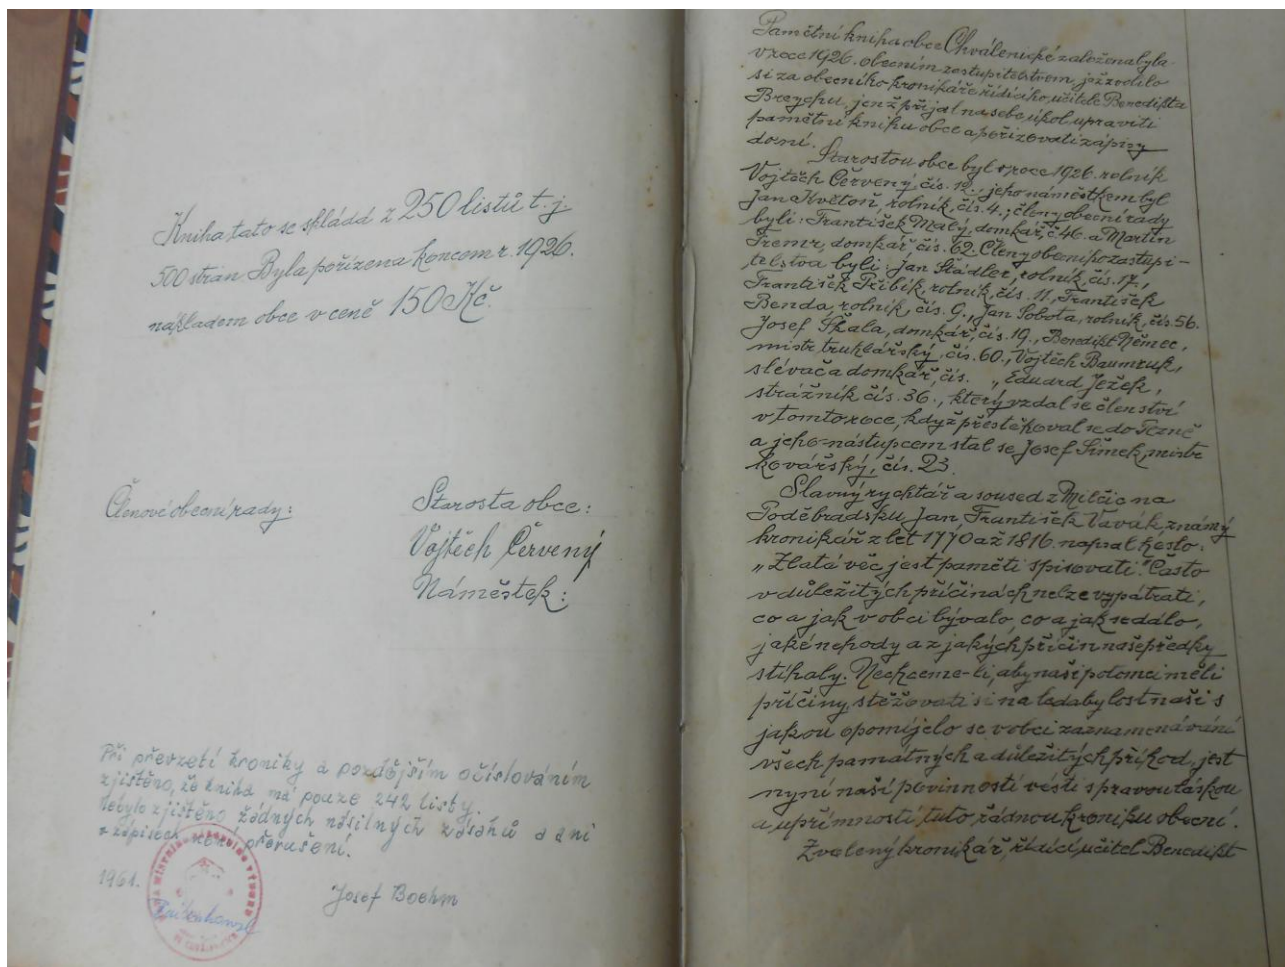 Kniha tato se skládá z 250 listů t. j.
500 stran. Byla pořízena koncem r. 1926.
nákladem obce v ceně 150 Kč.
Členové obecní rady:
Starosta obce:
Vojtěch Červený
Náměstek:
Při převzetí kroniky a pozdějším očíslováním
zjištěno, že kniha má pouze 242 listy.
Nebylo zjištěno žádných násilných zásahů a ani
v zápisech není přerušení.
1961.
Josef Boehm
Pamětní kniha obce Chválenické založena byla
v roce 1926. obecním zastupitelstvem, jež zvolilo
si za obecního kronikáře řídícího učitele Benedikta
Brejchu, jenž přijal na sebe úkol upraviti
pamětní knihu obce a pořizovati zápisy
do ní.
Starostou obce byl v roce 1926. rolník
Vojtěch Červený čís. 12., jeho náměstkem byl
Jan Květoň, rolník, čís. 4.; členy obecní rady
byli: František Malý, domkář, č. 46. a Martin
Tremr, domkář, čís. 62. Členy obecního zastupi-
telstva byli: Jan Štádler, rolník, čís. 17.,
František Přibík, rolník, čís. 11., František
Benda, rolník, čís. 9., Jan Sobota, rolník, čís. 56.
Josef Škala, domkář, čís. 19., Benedikt Němec,
mistr truhlářský, čís. 60., Vojtěch Baumruk,
slévač a domkář, čís. „ Eduard Ježek,
strážník čís. 36., který vzdal se členství
v tomto roce, když přestěhoval se do Plzně
a jeho nástupcem stal se Josef Šimek, mistr
kovářský, čís. 23.
Slavný rychtář a soused z Milčic na
Poděbradsku, Jan František Vavák, známý
kronikář z let 1770 až 1816. napsal heslo:
„Zlatá věc jest paměti spisovati." Často
v důležitých příčinách nelze vypátrati,
co a jak v obci bývalo, co a jak se dálo,
jaké nehody a z jakých příčin naše předky
stíhaly. Nechceme-li, aby naši potomci měli
příčiny stěžovati si na ledabylost naši s
jakou opomíjelo se v obci zaznamenávání
všech památných a důležitých příhod, jest
nyní naší povinností vésti s pravou láskou
a upřímností tuto řádnou kroniku obecní.
Zvolený kronikář, řídící učitel Benedikt